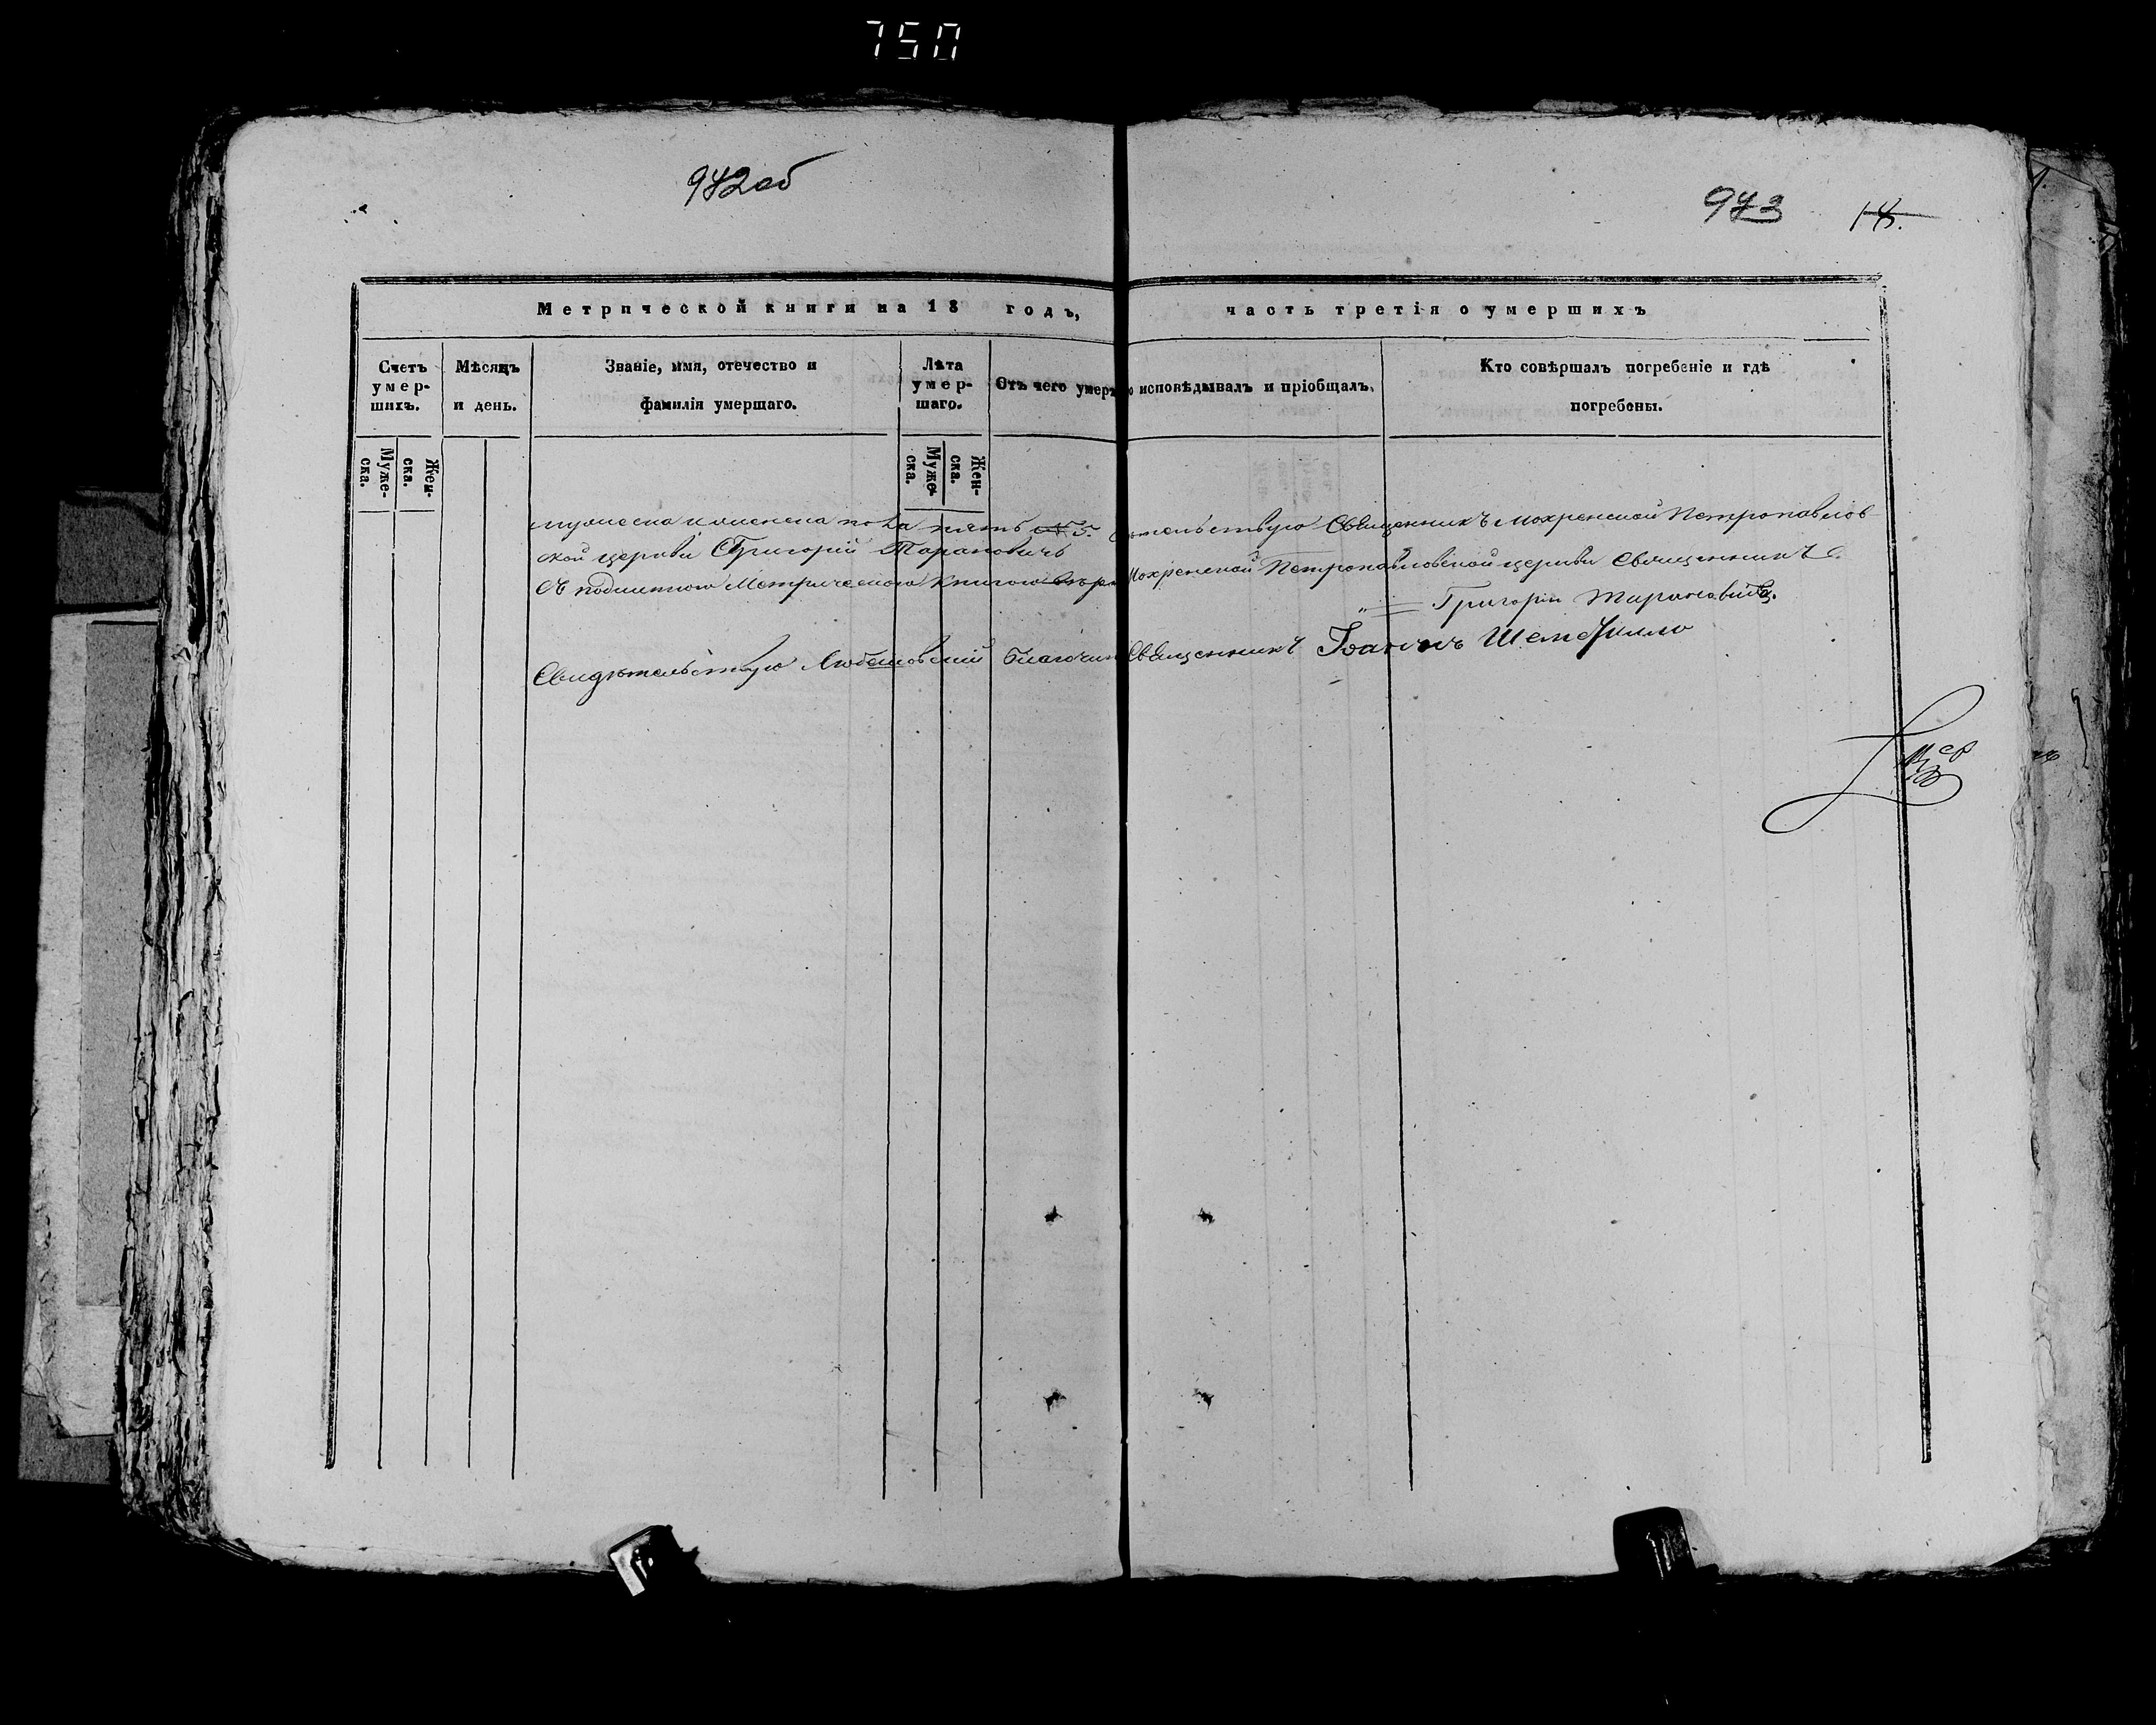 750
972об
973 18.
Метрической книги на 18 годъ, часть третія о умершихъ
Счетъ умер-шихъ.
Мѣсяцъ и день.
Званіе, имя, отечество и фамилія умершаго.
Лѣта умер-шаго.
Отъ чего умеръ
исповѣдывалъ и пріобщалъ.
Кто совѣршалъ погребеніе и гдѣ погребены.
Муже-ска.
Жен-ска.
Муже-ска.
Жен-ска.
мужеска и женска пола пять № 5. Священникъ Мохренской Петропавлов
ской церкви Григорій Тарановичъ
Съ подлинною Метрическою книгою Мохренской Петропавловской церкви Священникъ
Григорій Тарановичъ.
Свидѣтельствую Любешовскій Благочин Священникъ Іоаннъ Шеметилло